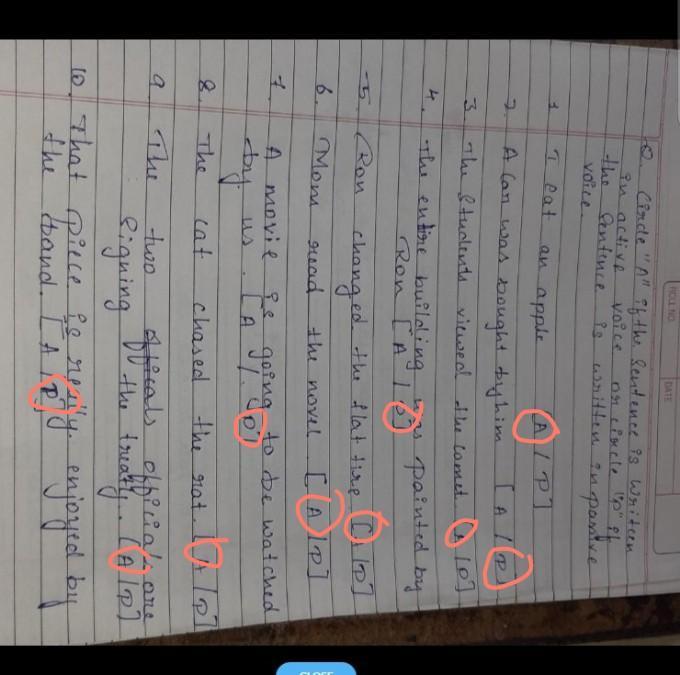 ROLL NO.
DATE
Q. Circle "A" if the sentence is writeen
in active voice or circle "p" if
the sentence is written in passive
voice.
1. I eat an apple [A / P]
2. A car was bought by him [A / P]
3. The students viewed the comet [A / P]
4. The entire building was painted by
Ron [A / P]
5. Ron changed the flat tire [A / P]
6. Mom read the novel [A / P]
7. A movie is going to be watched
by us. [A / P]
8. The cat chased the rat. [A / P]
9. The two officials are
signing the treaty. [A / P]
10. That piece is really enjoyed by
the band. [A / P]
CLOSE